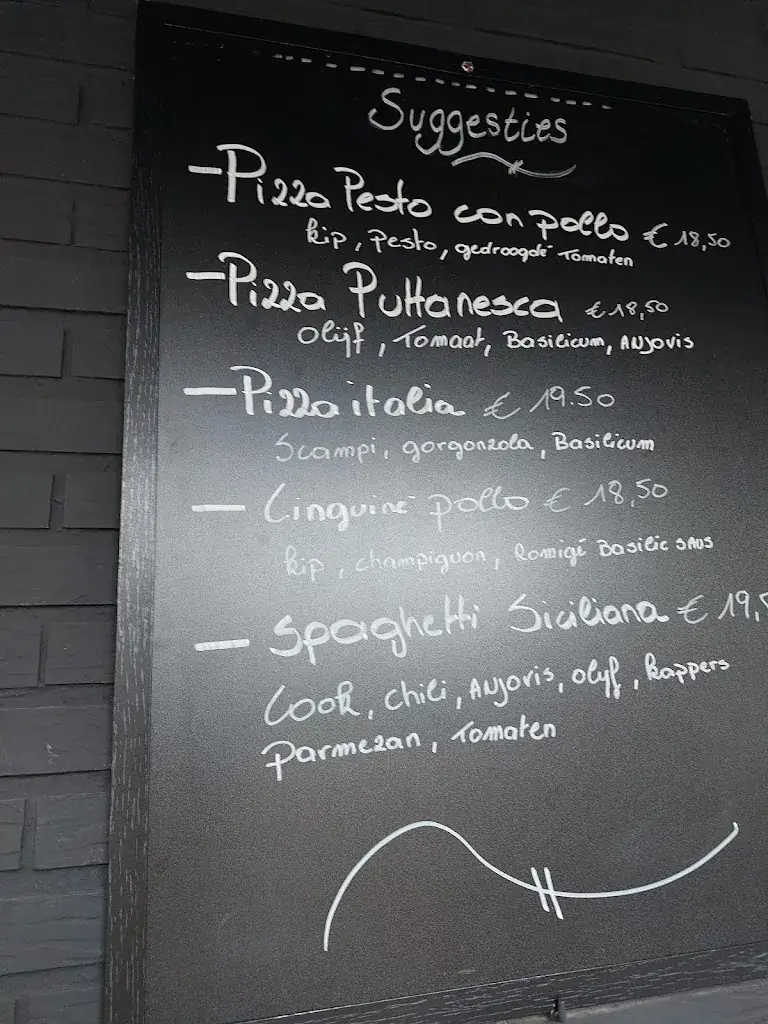 Suggesties
- Pizza Pesto con pollo € 18,50
kip, pesto, gedroogde Tomaten
- Pizza Puttanesca € 18,50
olijf, Tomaat, Basilicum, ANJovis
- Pizza italia € 19.50
Scampi, gorgonzola, Basilicum
- Linguine pollo € 18,50
kip, champignon, Romige Basilic SAUS
- Spaghetti Siciliana € 19,5
Look, chili, ANJoris, olyf, kappers
parmezan, Tomaten